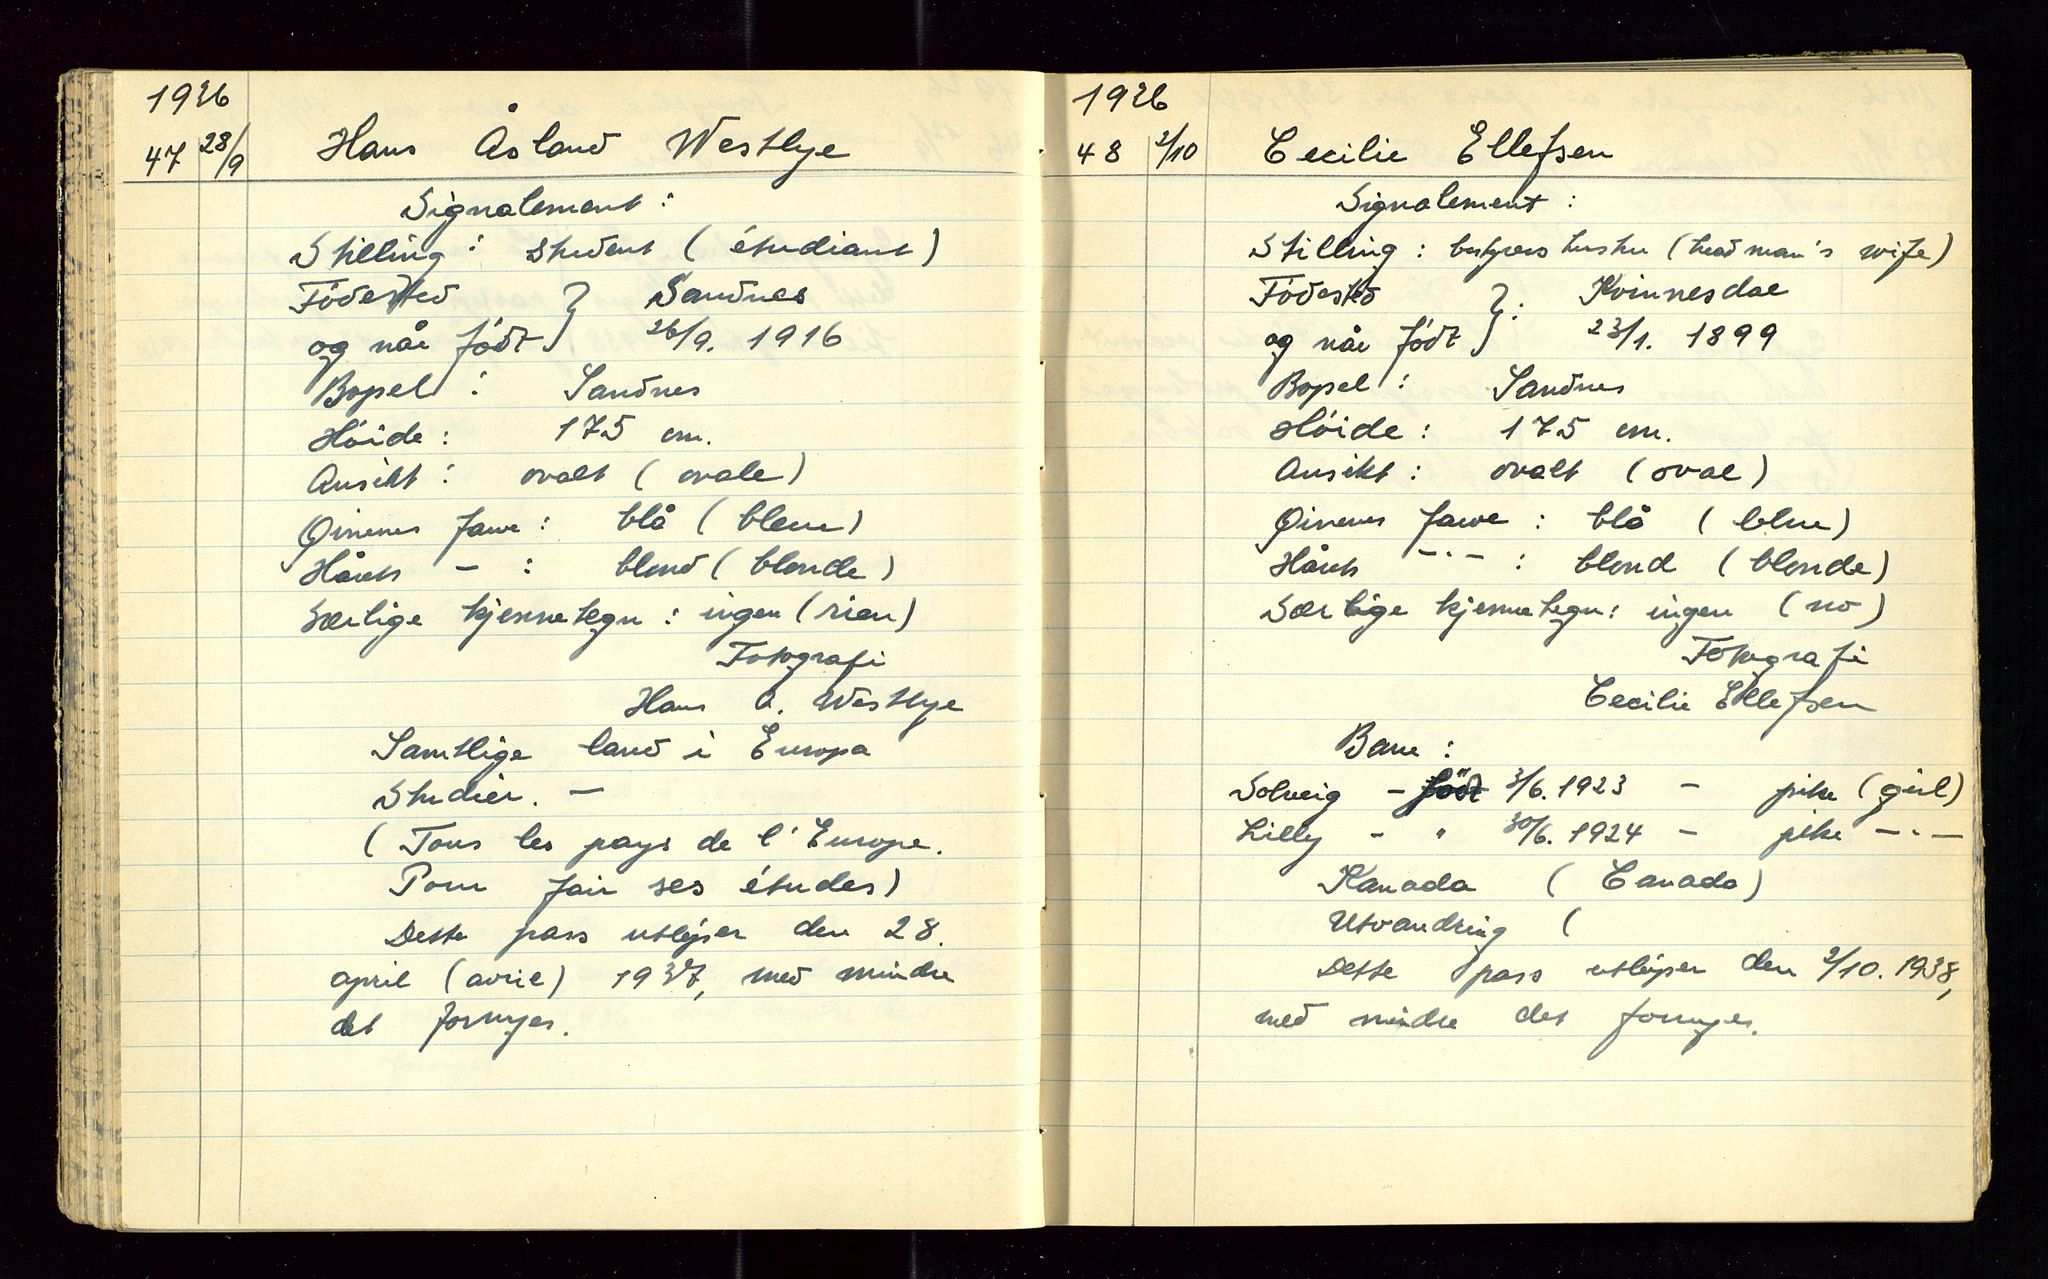 1936
47 28/9 Hans Åsland Westlye
Signalement:
Stilling: student (étudiant)
Födested } Sandnes
og når födt } 26/9. 1916
Bopel: Sandnes
Höide: 175 cm.
Ansikt: ovalt (ovale)
Öinenes farve: blå (bleu)
Hårets - : blond (blonde)
Særlige kjennetegn: ingen (rien)
Fotografi
Hans Å. Westlye
Samtlige land i Europa
Studier. -
(Tous les pays de l'Europe.
Pour fair ses études)
Dette pass utlöper den 28.
april (avril) 1937, med mindre
det fornyes.
1936
48 2/10 Cecilie Ellefsen
Signalement:
Stilling: bestyrers hustru (head man's wife)
Födested } : Kvinnesdal
og når födt } 23/1. 1899
Bopel: Sandnes
Höide: 175 cm.
Ansikt: ovalt (oval)
Öinenes farve: blå (blue)
Hårets -"- : blond (blonde)
Særlige kjennetegn: ingen (no)
Fotografi
Cecilie Ellefsen
Barn:
Solveig - födt 3/6. 1923 - pike (girl)
Lilly - " 30/6. 1924 - pike -"-
Kanada (Canada)
Utvandring (
Dette pass utlöper den 2/10. 1938,
med mindre det fornyes.